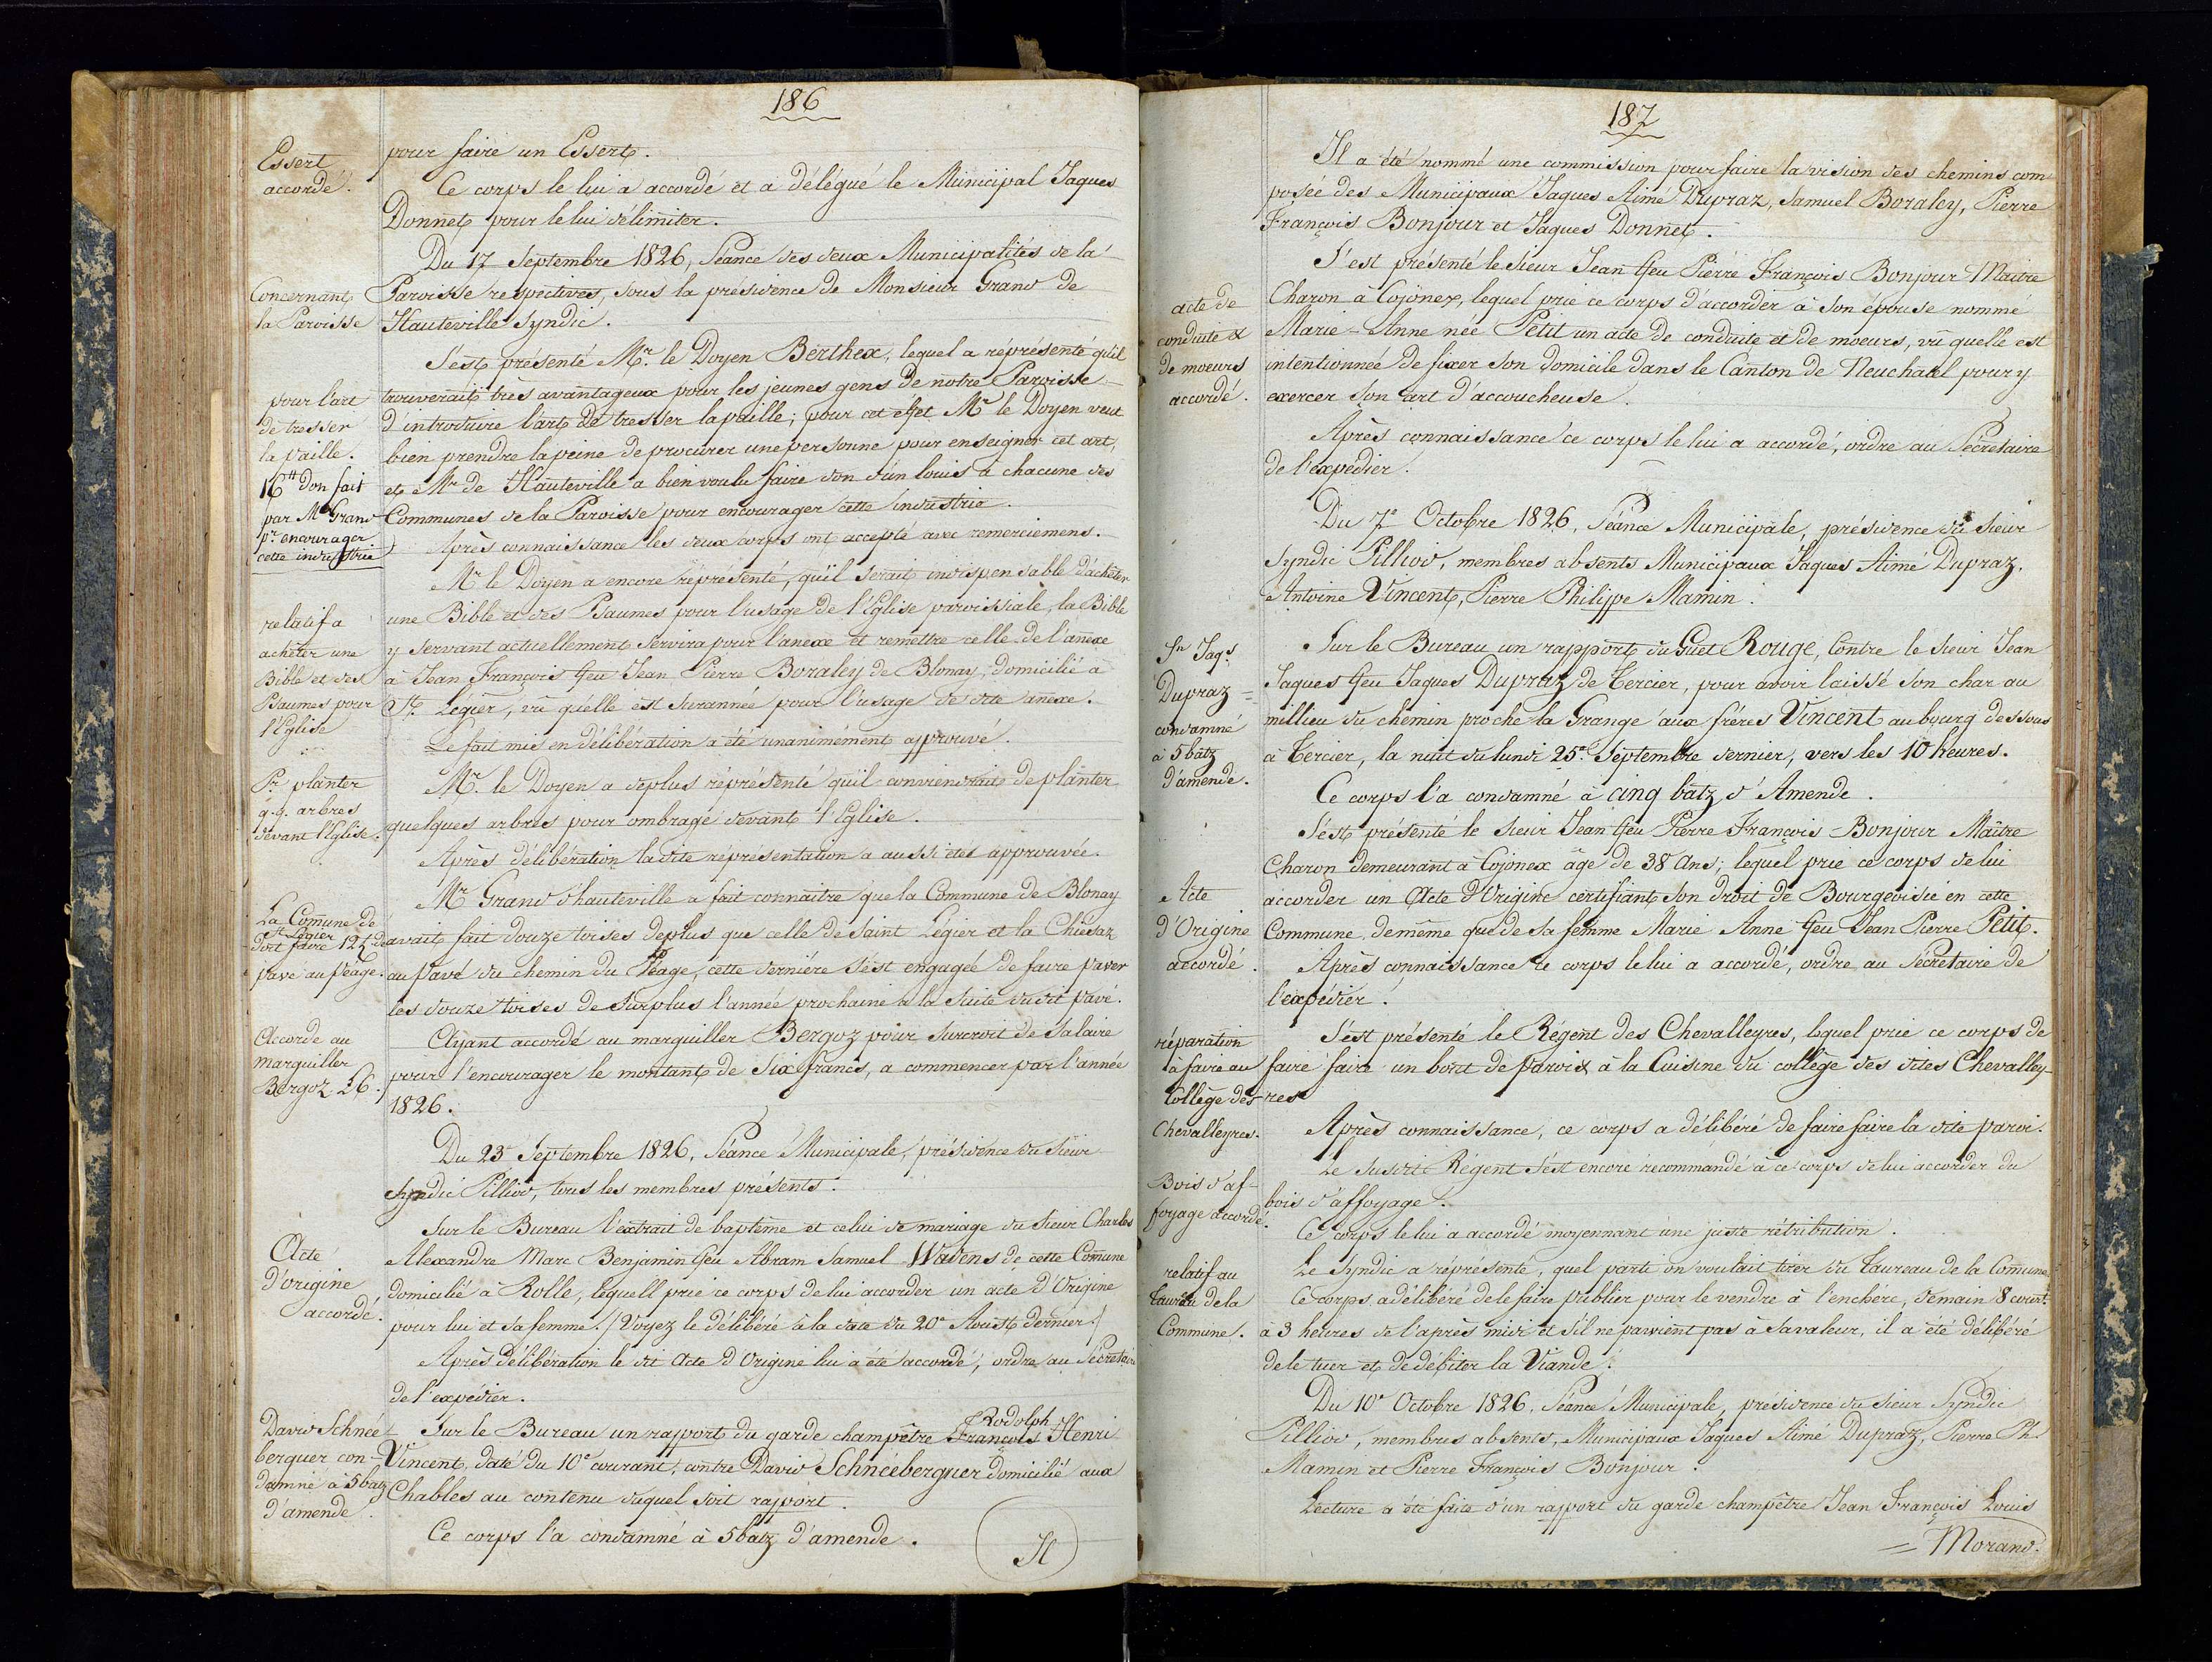 186
Essert
accordé.
pour faire un Essert.
Ce corps le lui a accordé et a délégué le Municipal Jaques
Donnet pour le lui délimiter.
Du 17 Septembre 1826, Séance des deux Municipalités de la
Concernant
la Paroisse
Paroisse respectives, sous la présidence de Monsieur Grand de
Hauteville Syndic.
S'est présenté Mr. le Doyen Berthex, lequel a réprésenté qu'il
pour l'art
de tresser
la paille.
16 tt don fait
par Mr Grand
pr. encourager
cette industrie
trouverait très avantageux pour les jeunes gens de notre Paroisse
d'introduire l'art de tresser la paille; pour cet effet Mr le Doyen veut
bien prendre la peine de procurer une personne pour enseigner cet art,
et Mr de Hauteville a bien voulu faire don d'un louis à chacune des
Communes de la Paroisse pour encourager cette industrie.
Après connaissance les deux corps ont accepté avec remerciemens.
Mr le Doyen a encore réprésenté, qu'il serait indispensable d'achêter
relatif a
achêter une
Bible et des
Psaumes pour
l'Eglise
une Bible et des Psaumes pour l'usage de l'Eglise paroissiale, la Bible
y servant actuellement servira pour l'anexe et remettre celle de l'anexe
à Jean François feu Jean Pierre Boraley de Blonay, domicilié a
St. Légier, vû qu'elle est surannée pour l'usage de dite anexe.
Le fait mis en délibération a été unanimément approuvé.
Pr planter
q.q. arbres
devant l'Eglise.
Mr. le Doyen a deplus réprésenté qu'il conviendrait de planter
quelques arbres pour ombrage devant l'Eglise.
Après délibération ladite réprésentation a aussi étés approuvée.
Mr Grand d'hauteville a fait connaitre que la Commune de Blonay
La Comune de
St Légier
doit faire 12 t. de
pavé au péage.
avait fait douze toises deplus que celle de Saint Légier et la Chiesaz
au pavé du chemin du Péage, cette dernière s'est engagée de faire paver
les douze toises de surplus l'année prochaine à la suite du dit pavé.
Accorde au
marguiller
Bergoz £6.
Ayant accordé au marguiller Bergoz pour surcroit de salaire
pour l'encourager le montant de Six francs, a commencer par l'année
1826.
Du 23e Septembre 1826, Séance Municipale, présidence du Sieur
Syndic Pilliod, tous les membres présents.
Sur le Bureau l'extrait de baptême et celui de mariage du Sieur Charles
Acte
d'origine
accordé.
Alexandre Marc Benjamin feu Abram Samuel Wadens de cette Comune
domicilié à Rolle, lequell prie ce corps de lui accorder un acte d'Origine
pour lui et sa femme. / Voyez le délibéré à la date du 20e Aoust dernier /
Après délibération le dit Acte d'Origine lui a été accordé, ordre au Sécretaire
de l'expédier.
David Schnée
berguer con-
damné à 5 batz
d'amende.
Sur le Bureau un rapport du garde champêtre François Rodolph Henri
Vincent, daté du 10e courant, contre David Schneeberguer domicilié aux
Chables au contenu duquel soit rapport.
Ce corps l'a condamné à 5 batz d'amende.
187
Il a été nommé une commission pour faire la vision des chemins com
posée des Municipaux Jaques Aimé Dupraz, Samuel Boraley, Pierre
François Bonjour et Jaques Donnet.
S'est présenté le sieur Jean feu Pierre François Bonjour Maitre
acte de
conduite &
de moeurs
accordé.
Charon à Cojonex, lequel prie ce corps d'accorder à son épouse nommé
Marie-Anne née Petit un acte de conduite et de moeurs, vû quelle est
intentionnée de fixer son domicile dans le Canton de Neuchatel pour y
exercer son art d'accoucheuse.
Après connaissance ce corps le lui a accordé, ordre au Sécretaire
de l'expédier.
Du 7e Octobre 1826, Séance Municipale, présidence du Sieur
Syndic Pilliod, membres absents Municipaux Jaques Aimé Dupraz,
Antoine Vincent, Pierre Philippe Mamin.
Jn Jaqs
Dupraz
condamné
à 5 batz
d'amende.
Sur le Bureau un rapport du Guet Rouge, Contre le Sieur Jean
Jaques feu Jaques Dupraz de Tercier, pour avoir laissé son char au
millieu du chemin proche la Grange aux frères Vincent au bourg dessous
à Tercier, la nuit du lundi 25e Septembre dernier, vers les 10 heures.
Ce corps l'a condamné à cinq batz d'Amende.
S'est présenté le Sieur Jean feu Pierre François Bonjour Maître
Charon demeurant à Cojonex âgé de 38 Ans; lequel prie ce corps de lui
Acte
d'Origine
accordé.
accorder un Acte d'Origine certifiant son droit de Bourgeoisie en cette
Commune, demême que de sa femme Marie Anne feu Jean Pierre Petit.
Après connaissance ce corps le lui a accordé, ordre au Sécretaire de
l'expédier.
réparation
à faire au
Collège des
Chevalleyres.
S'est présenté le Régent des Chevalleyres, lequel prie ce corps de
faire faire un bout de paroix à la Cuisine du collège des dites Chevalley-
res
Après connaissance, ce corps a délibéré de faire faire la dite paroi.
Bois d'af-
foyage accordé.
Le susdit Régent s'est encore recommandé à ce corps de lui accorder du
bois d'affoyage.
Ce corps le lui a accordé moyennant une juste rétribution.
relatif au
taureau de la
Commune.
Le Syndic a réprésenté, quel parti on voulait tirer du Taureau de la Comune
Ce corps a délibéré de le faire publier pour le vendre à l'enchère, demain 8 court.
à 3 heures de l'après midi et s'il ne parvient pas à sa valeur, il a été délibéré
de le tuer et de débiter la Viande.
Du 10e Octobre 1826, Séance Municipale, présidence du Sieur Syndic
Pilliod, membres absents, Municipaux Jaques Aimé Dupraz, Pierre Ph.
Mamin et Pierre François Bonjour.
Lecture a été faite d'un rapport du garde champêtre Jean François Louis
= Morand.